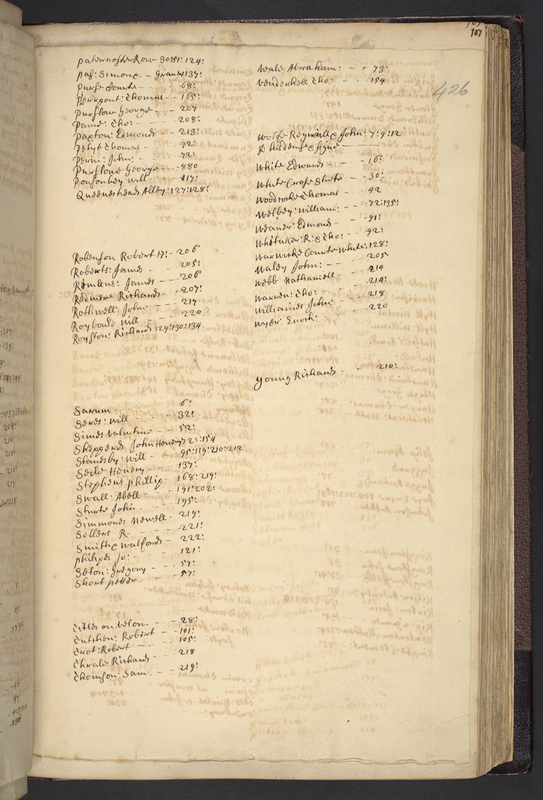 107
426
paternoster Row 30:81:124:
purse Courte - - 68:
pierrpont: Thomas - 165:
purslow George - - 207
paine: Tho: - - 208:
paxton: Edmond - - 213:
petyt Thomas - 72:
perin: John: - - 72:
purslowe George - - 880
ponsonbey will - - 117:
Queenes head Alley: 127:128:
Robenson Robert 17: - 206
Roberts: James - 205:
Romans: James - 206
Redmere Richard - 207:
Rothwell: John - - 217
Roybould will - - 220
Royston: Richard 129:130:134
Sarum - - 6:
Seres: will - - 32:
Simes Valentine - - 52:
Shepperd John Henry 72:154
Stansby: will - - 95:119:210:212
Seile Henery - - 137:
Stephens phillip - 168:219:
Swall: Abell - - 191:202:
Starte John - - 195:
Simmones Newell - 219:
Sollers R - - 221:
Smith & Walford - - 222:
philipes Jo: - - 121:
Seton: Gregory - - 57:
Short peter - - 57:
Titles on Veton - - 28:
Tutchein: Robert - - 101:
Trot: Robert - - 105:
Thrale Richard - - 218
Thomson: Sam: - - 219:
Veale Abraham: - - 73:
Venderhell Tho: - - 154
Wolfe Reynolld & John: 7:9:12
White Edward - - 16:
White Crose Strete - - 36:
Woodcoke Thomas - - 42
Welbey: William: - - 72:135:
Weaver: Edmond - - 91:
Whitaker: R: & Tho: - - 92:
Warwicke Courte White: 128:
Waley John: - - 205
Webb Nathaniell - - 214
Warren: Tho: - - 214:
Williames John: - - 218
Wyer: Enoch: - - 220
Young Richard - - 210: